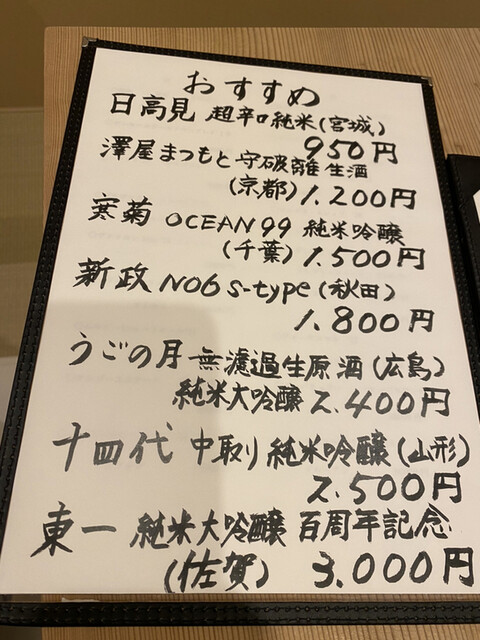 おすすめ
日高見 超辛口純米(宮城)
950円
澤屋まつもと守破離生酒
(京都)1.200円
寒菊 OCEAN99 純米吟醸
(千葉)1.500円
新政 NO6 S-type(秋田)
1.800円
うごの月 無濾過生原酒(広島)
純米大吟醸 2.400円
十四代 中取り純米吟醸(山形)
2.500円
東一 純米大吟醸 百周年記念
(佐賀) 3.000円